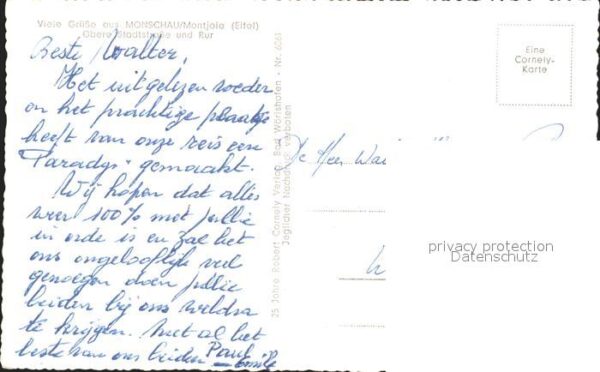 Viele Grüße aus MONSCHAU/Montjoie (Eifel)
Obere Stadtstraße und Rur
Beste Walter,
Het uitgelezen weder
en het prachtige plaatje
heeft van onze reis een
"Paradijs" gemaakt.
Wij hopen dat alles
weer 100% met jullie
in orde is en zal het
ons ongelooflijk veel
genoegen doen jullie
beiden bij ons weldra
te krijgen. Met al het
beste van ons beiden Paul
Emilie
25 Jahre Robert Cornely Verlag, Bad Wörishofen · Nr. 6061
Jeglicher Nachdruck verboten
Eine
Cornely-
Karte
De Heer
privacy protection
Datenschutz